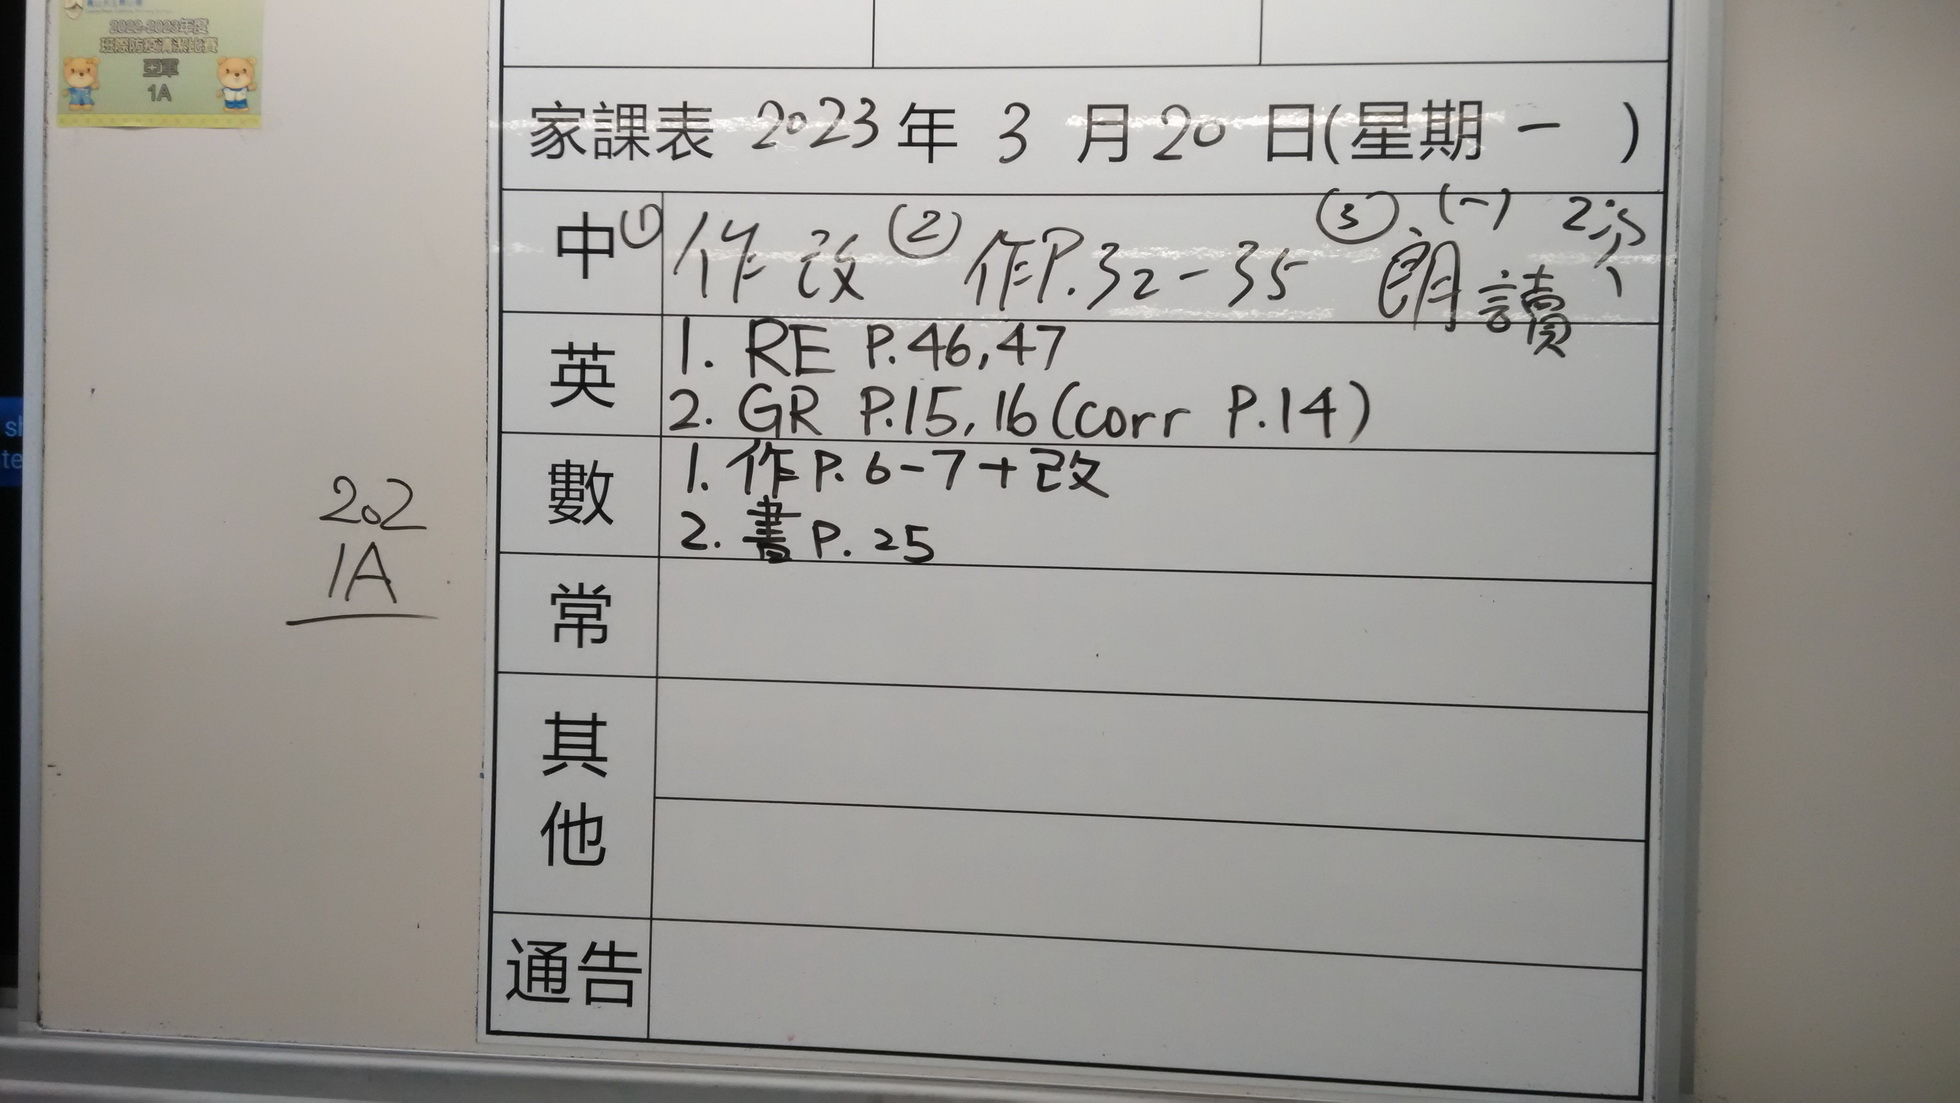 2022-2023年度
班際防疫清潔比賽
亞軍
1A
家課表 2023年 3 月 20 日(星期 一 )
中 (1) 作改 (2) 作P.32-35 (3) (一) 朗讀
英 1. RE P.46,47
2. GR P.15, 16 (corr P.14)
數 1. 作P. 6-7+改
2. 書P. 25
202
1A
常
其他
通告